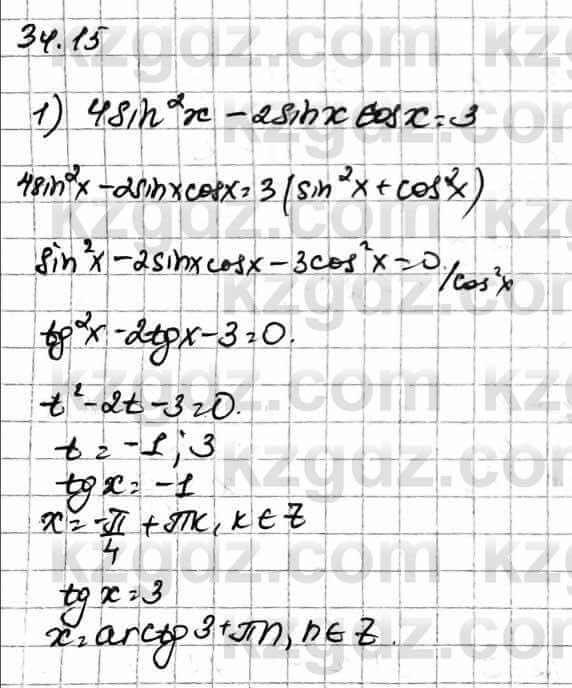 34.15
1) 4sin²x - 2sinx cosx = 3
4sin²x - 2sinxcosx = 3(sin²x + cos²x)
sin²x - 2sinxcosx - 3cos²x = 0. /cos²x
tg²x - 2tgx - 3 = 0.
t² - 2t - 3 = 0.
t = -1; 3
tgx = -1
x = -π/4 + πk, k ∈ Z
tgx = 3
x = arctg3 + πn, n ∈ Z.
kzgdz.com